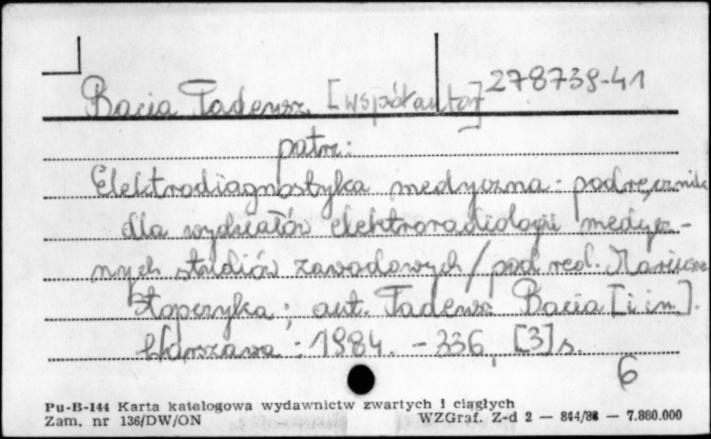 Bacia Tadeusz [współautor] 278739-41
patrz:
Elektrodiagnostyka medyczna : podręcznik
dla wydziałów elektroradiologii medycz-
nych studiów zawodowych / pod red. Mariusza
Stopczyka ; aut. Tadeusz Bacia [i in].
Warszawa : 1984. - 336, [3] s.
6
Pu-B-144 Karta katalogowa wydawnictw zwartych i ciągłych
Zam. nr 136/DW/ON WZGraf. Z-d 2 — 844/84 — 7.880.000